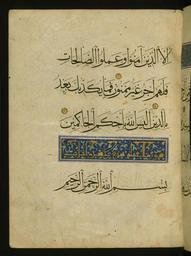 الا الذين آمنوا وعملوا الصالحات
فلهم اجر غير ممنون فما يكذبك بعد
بالدين اليس الله باحكم الحاكمين
بسم الله الرحمن الرحيم